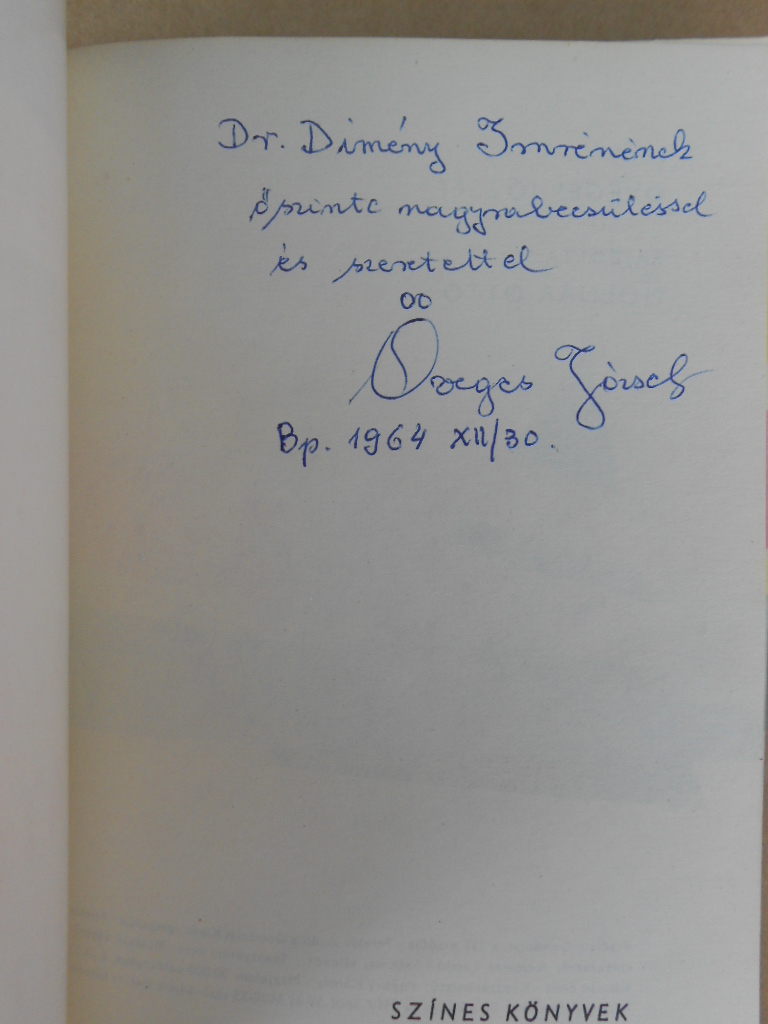 Dr. Dimény Imrénének
őszinte nagyrabecsüléssel
és szeretettel
Öveges József
Bp. 1964 XII/30.
SZÍNES KÖNYVEK